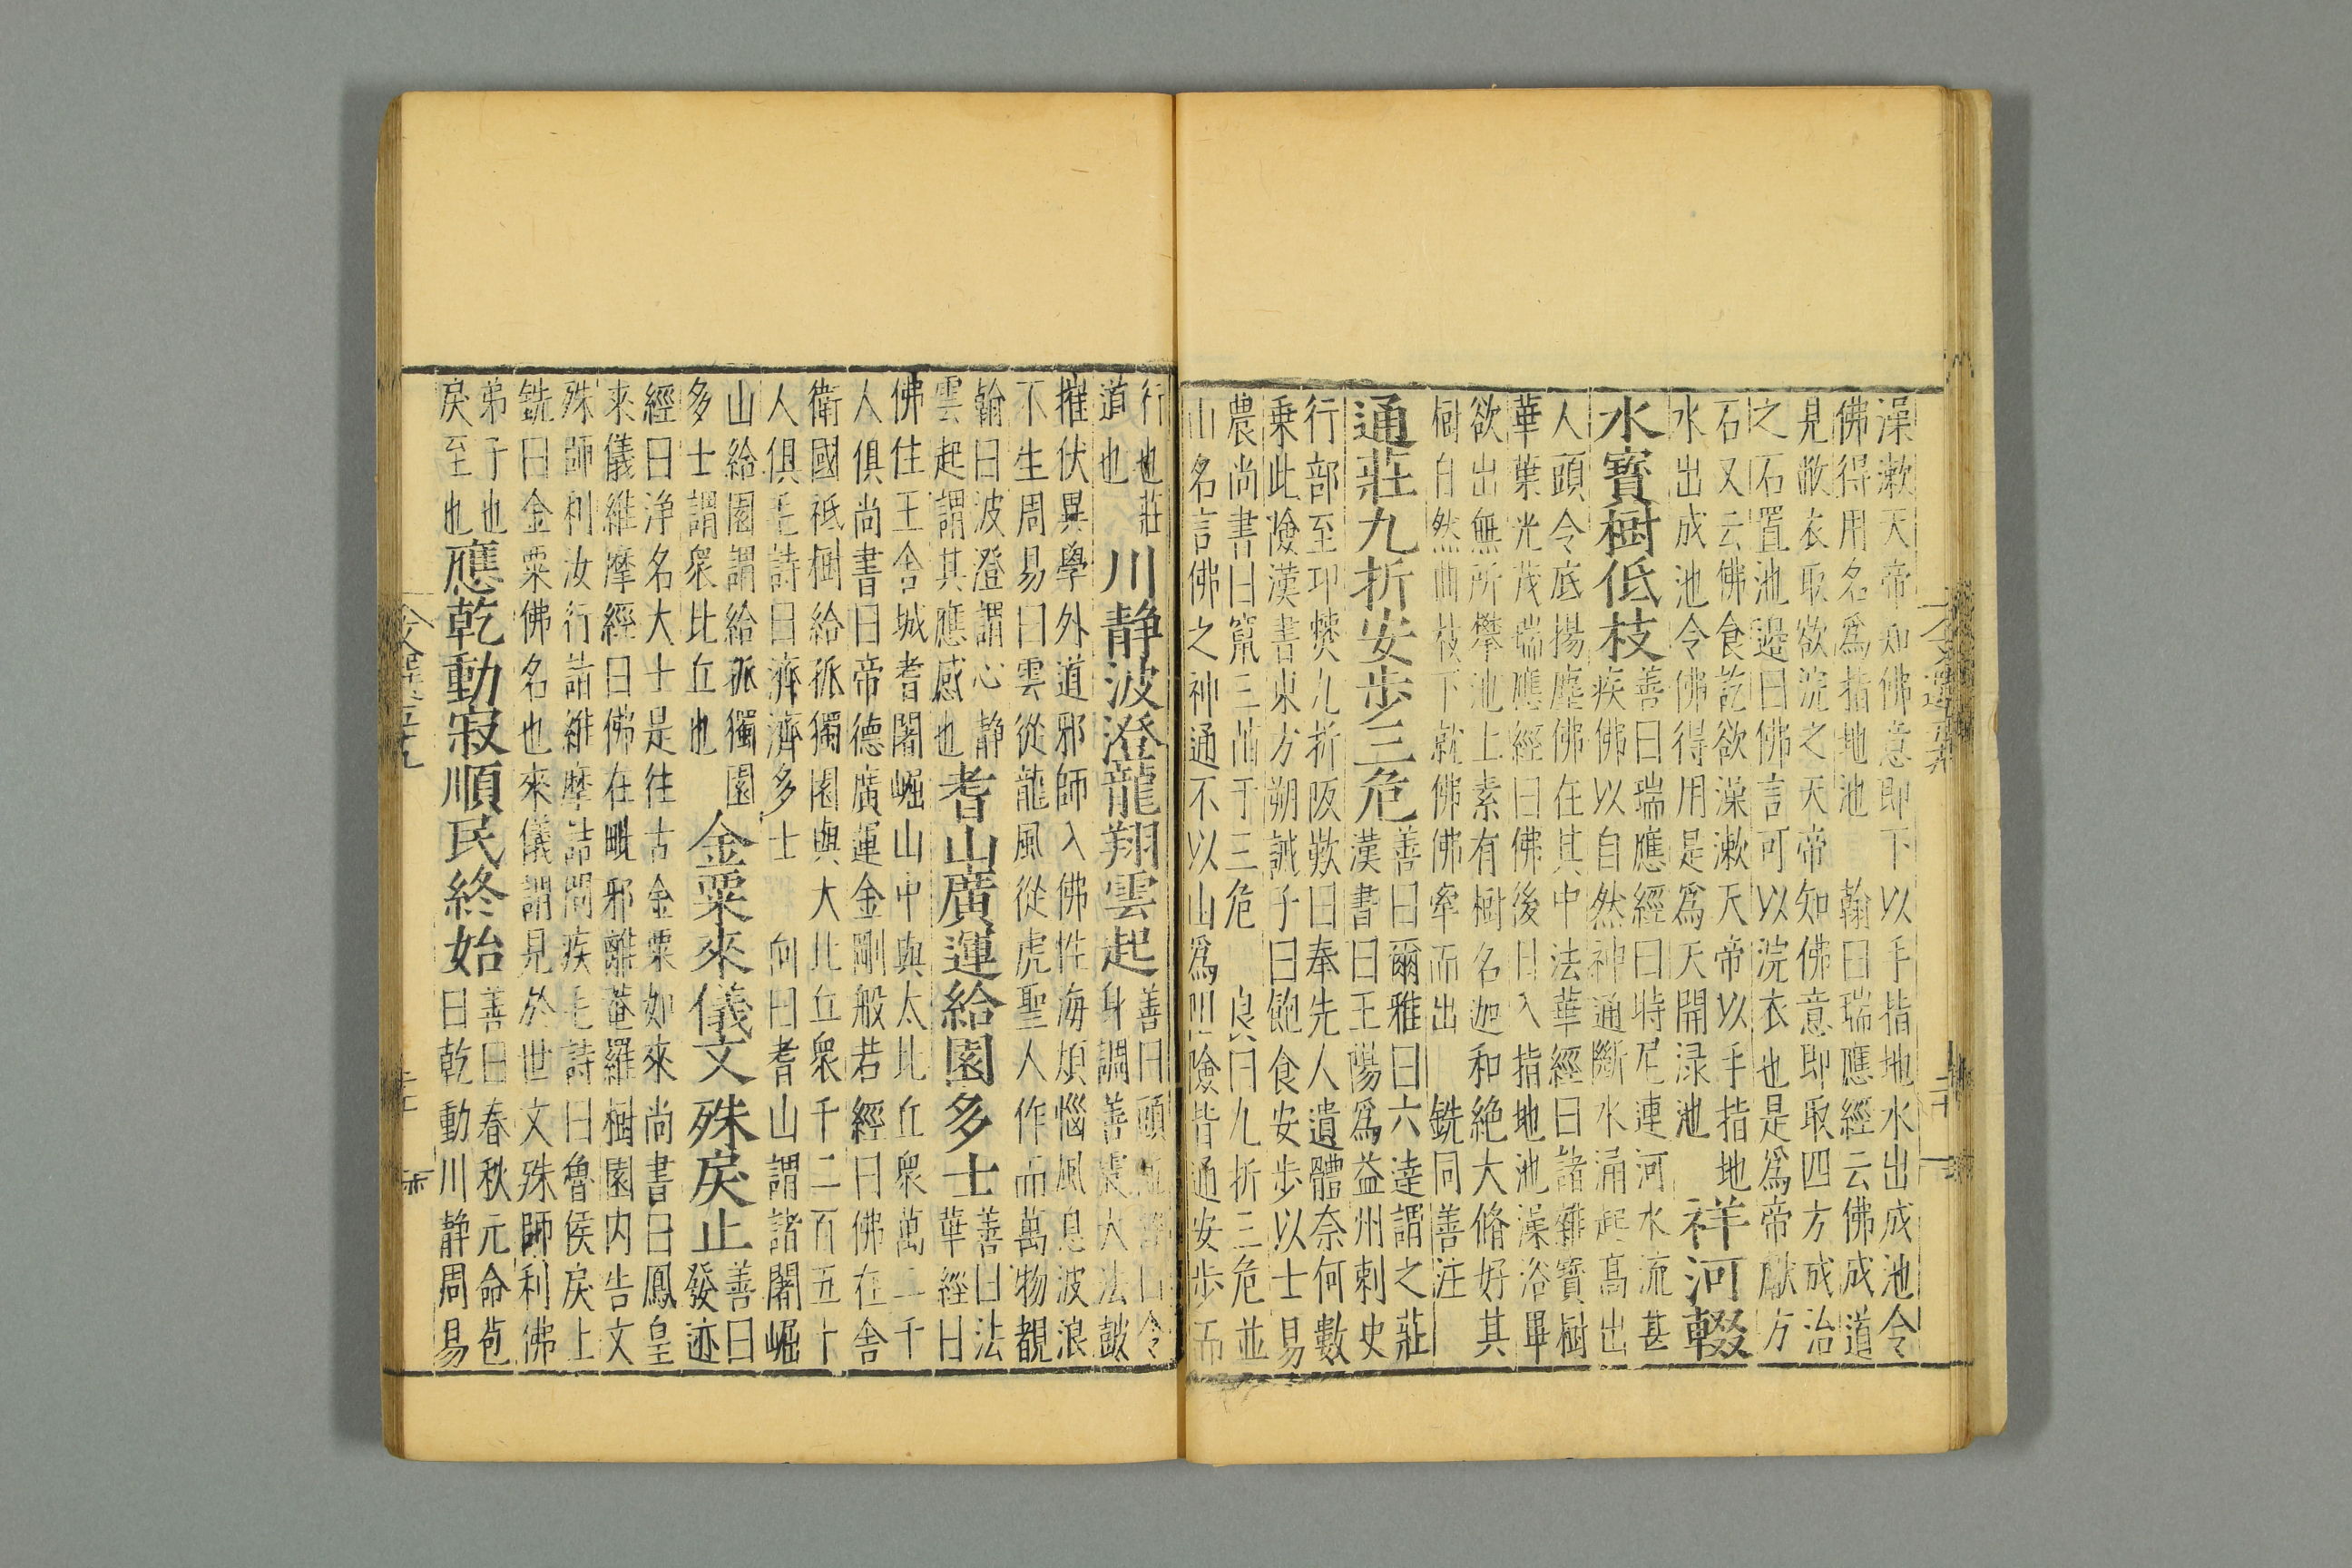 澡漱天帝知佛意即下以手指地水出成池令
佛得用名爲指地池 翰曰瑞應經云佛成道
見敝衣取欲浣之天帝知佛意即取四方成治
之石置池邉曰佛言可以浣衣也是爲帝獻方
石又云佛食訖欲澡漱天帝以手指地
水出成池令佛得用是爲天開渌池
祥河輟
水寶樹低枝
善曰瑞應經曰時尼連河水流甚
疾佛以自然神通斷水涌起高出
人頭令底揚塵佛在其中法華經曰諸雜寶樹
華葉光茂瑞應經曰佛後日入指地池澡浴畢
欲出無所攀池上素有樹名迦和絶大脩好其
樹自然曲枝下就佛佛牽而出 銑同善注
通莊九折安步三危
善曰爾雅曰六逹謂之莊
漢書曰王陽爲益州刺史
行部至卭僰九折阪歎曰奉先人遺體奈何數
乗此險漢書東方朔誡子曰飽食安步以士易
農尚書曰竄三苗于三危 良曰九折三危並
山名言佛之神通不以山爲川險皆通安步而
行也莊
道也
川静波澄龍翔雲起
善曰頭
身調善 大法鼓
摧伏異學外道邪師入佛性海煩惱風息波浪
不生周易曰雲從龍風從虎聖人作而萬物覩
翰曰波澄謂心静
雲起謂其應感也
耆山廣運給園多士
善曰法
華經曰
佛住王舍城耆闍崛山中與大比丘衆萬二千
人俱尚書曰帝德廣運金剛般若經曰佛在舍
衛國祇樹給孤獨園與大比丘衆千二百五十
人俱毛詩曰濟濟多士 向曰耆山謂諸闍崛
山給園謂給孤獨園
多士謂衆比丘也
金粟來儀文殊戾止
善曰
發迹
經曰浄名大士是往古金粟如來尚書曰鳳皇
來儀維摩經曰佛在毗邪離菴羅樹園内告文
殊師利汝行詣維摩詰問疾毛詩曰魯侯戾止
銑曰金粟佛名也來儀謂見於世文殊師利佛
弟子也
戾至也
應乾動寂順民終始
善曰春秋元命苞
曰乾動川静周易